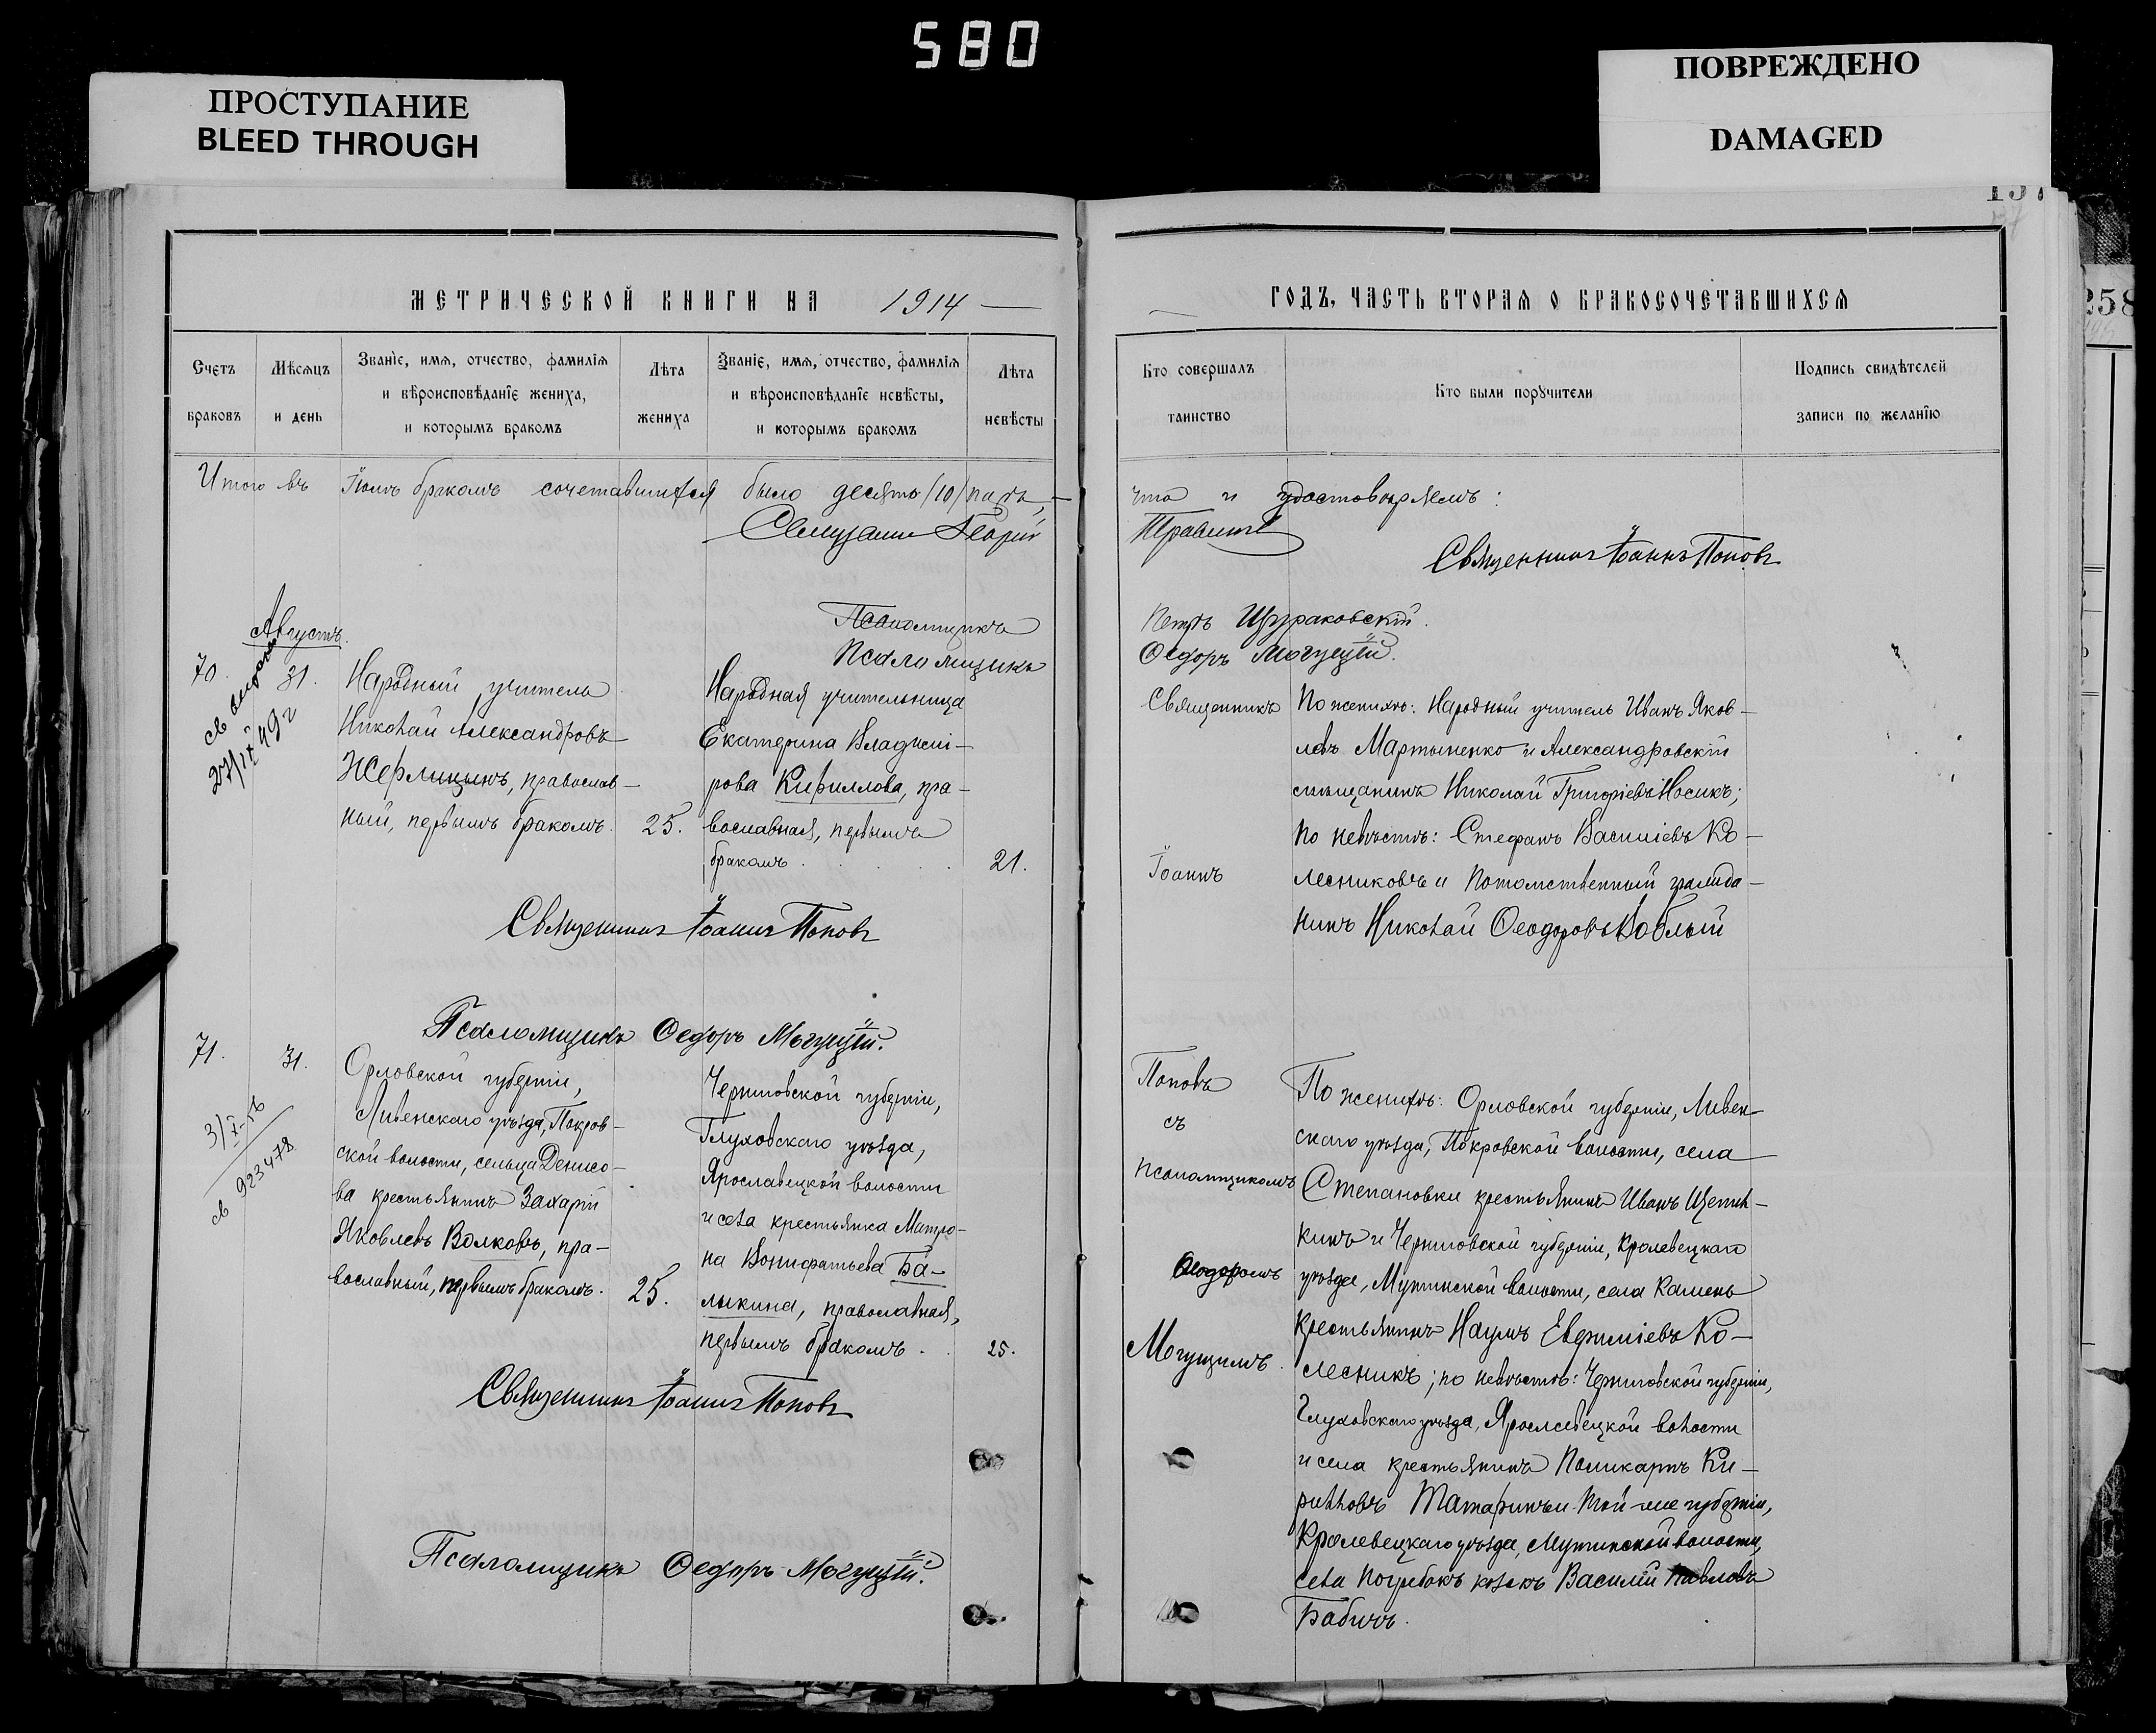 580
ПРОСТУПАНИЕ
BLEED THROUGH
ПОВРЕЖДЕНО
DAMAGED
258
МЕТРИЧЕСКОЙ КНИГИ НА 1914
Счетъ
браковъ
Мѣсяцъ
и день
Званіе, имя, отчество, фамилія
и вѣроисповѣданіе жениха,
и которымъ бракомъ
Лѣта
жениха
Званіе, имя, отчество, фамилія
и вѣроисповѣданіе невѣсты,
и которымъ бракомъ
Лѣта
невѣсты
Итого въ Іюлѣ бракомъ сочетавшихся было десять /10/ паръ,
Священникъ Іоаннъ Поповъ
Августъ.
Псаломщикъ
Псаломщикъ
70.
31.
27/IX 49 г
Народный учитель
Николай Александровъ
Жерлицынъ, православ-
ный, первымъ бракомъ.
25.
Народная учительница
Екатерина Владимі-
рова Кириллова, пра-
вославная, первымъ
бракомъ
21.
Священникъ Іоаннъ Поповъ
Псаломщикъ Ѳедоръ Могущій.
71.
31.
св 923478
Орловской губерніи,
Ливенскаго уѣзда, Покров-
ской волости, сельца Денисо-
ва крестьянинъ Захарій
Яковлевъ Волковъ, пра-
вославный, первымъ бракомъ.
25.
Черниговской губерніи,
Глуховскаго уѣзда,
Ярославецкой волости
и села крестьянка Матро-
на Вонифатьева Ба-
лыкина, православная,
первымъ бракомъ.
25.
Священникъ Іоаннъ Поповъ
Псаломщикъ Ѳедоръ Могущій.
ГОДЪ, ЧАСТЬ ВТОРАЯ О БРАКОСОЧЕТАВШИХСЯ
Кто совершалъ
таинство
Кто были поручители
Подпись свидѣтелей
записи по желанію
что и удостовѣряемъ:
Петръ Щураковскій.
Ѳедоръ Могущій.
Священникъ
Іоаннъ
По женихѣ: Народный учитель Иванъ Яков-
левъ Мартыненко и Александровскій
мѣщанинъ Николай Григоріевъ Носикъ;
по невѣстѣ: Стефанъ Василіевъ Ко-
лесниковъ и Потомственный гражда-
нинъ Николай Ѳеодоровъ Воблый
Поповъ
съ
псаломщикомъ
Ѳеодоромъ
Могущимъ.
По женихѣ: Орловской губерніи, Ливен-
скаго уѣзда, Покровской волости, села
Степановки крестьянинъ Иванъ Щепин-
кинъ и Черниговской губерніи, Кролевецкаго
уѣзда, Мутинской волости, села Камень
крестьянинъ Наумъ Евфиміевъ Ко-
лесникъ; по невѣстѣ: Черниговской губерніи,
Глуховскаго уѣзда, Ярославецкой волости
и села крестьянинъ Поликарпъ Ки-
рилловъ Татаринъ и той-же губерніи,
Кролевецкаго уѣзда, Мутинской волости,
села Погребокъ козакъ Василій Павловъ
Бабичъ.